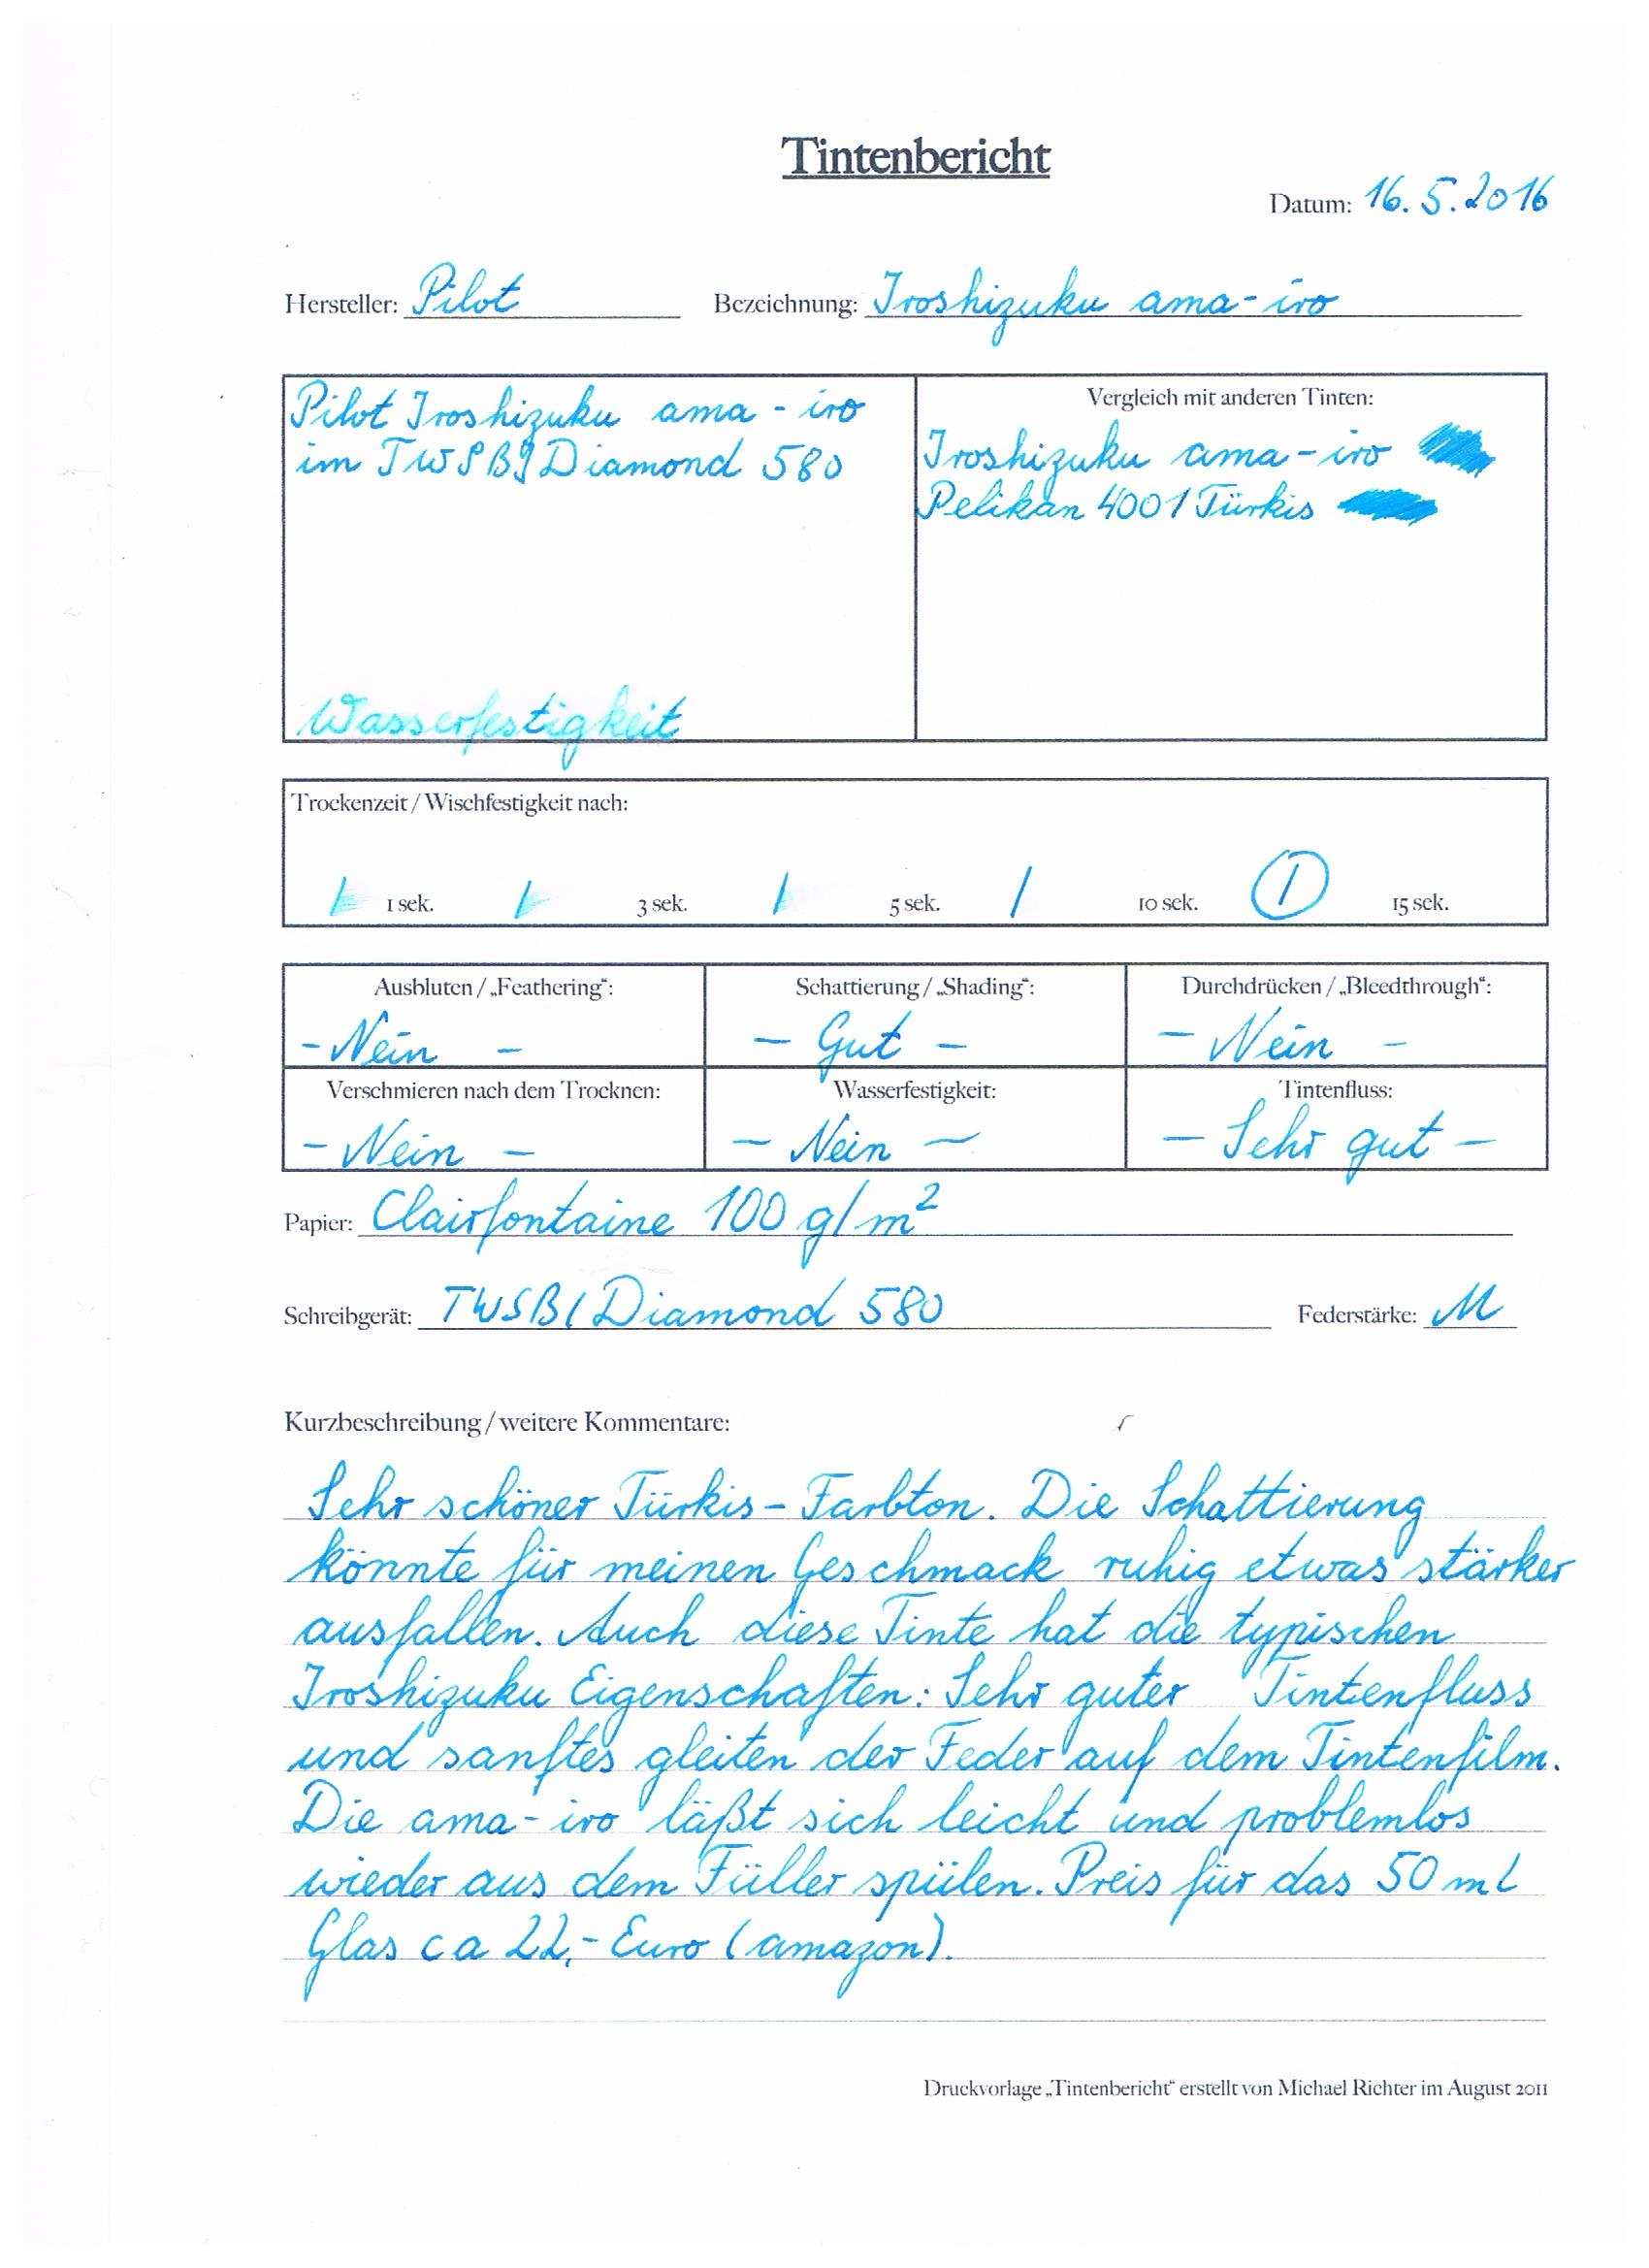 Tintenbericht
Datum: 16.5.2016
Hersteller: Pilot Bezeichnung: Iroshizuku ama-iro
Pilot Iroshizuku ama-iro
im TWSBI Diamond 580
Wasserfestigkeit
Vergleich mit anderen Tinten:
Iroshizuku ama-iro
Pelikan 4001 Türkis
Trockenzeit / Wischfestigkeit nach:
1 sek. 3 sek. 5 sek. 10 sek. 15 sek.
Ausbluten / „Feathering“: Schattierung / „Shading“: Durchdrücken / „Bleedthrough“:
- Nein - - Gut - - Nein -
Verschmieren nach dem Trocknen: Wasserfestigkeit: Tintenfluss:
- Nein - - Nein - - Sehr gut -
Papier: Clairfontaine 100 g/m²
Schreibgerät: TWSBI Diamond 580 Federstärke: M
Kurzbeschreibung / weitere Kommentare:
Sehr schöner Türkis-Farbton. Die Schattierung
könnte für meinen Geschmack ruhig etwas stärker
ausfallen. Auch diese Tinte hat die typischen
Iroshizuku Eigenschaften: Sehr guter Tintenfluss
und sanftes gleiten der Feder auf dem Tintenfilm.
Die ama-iro läßt sich leicht und problemlos
wieder aus dem Füller spülen. Preis für das 50 ml
Glas ca 22,- Euro (amazon).
Druckvorlage „Tintenbericht“ erstellt von Michael Richter im August 2011